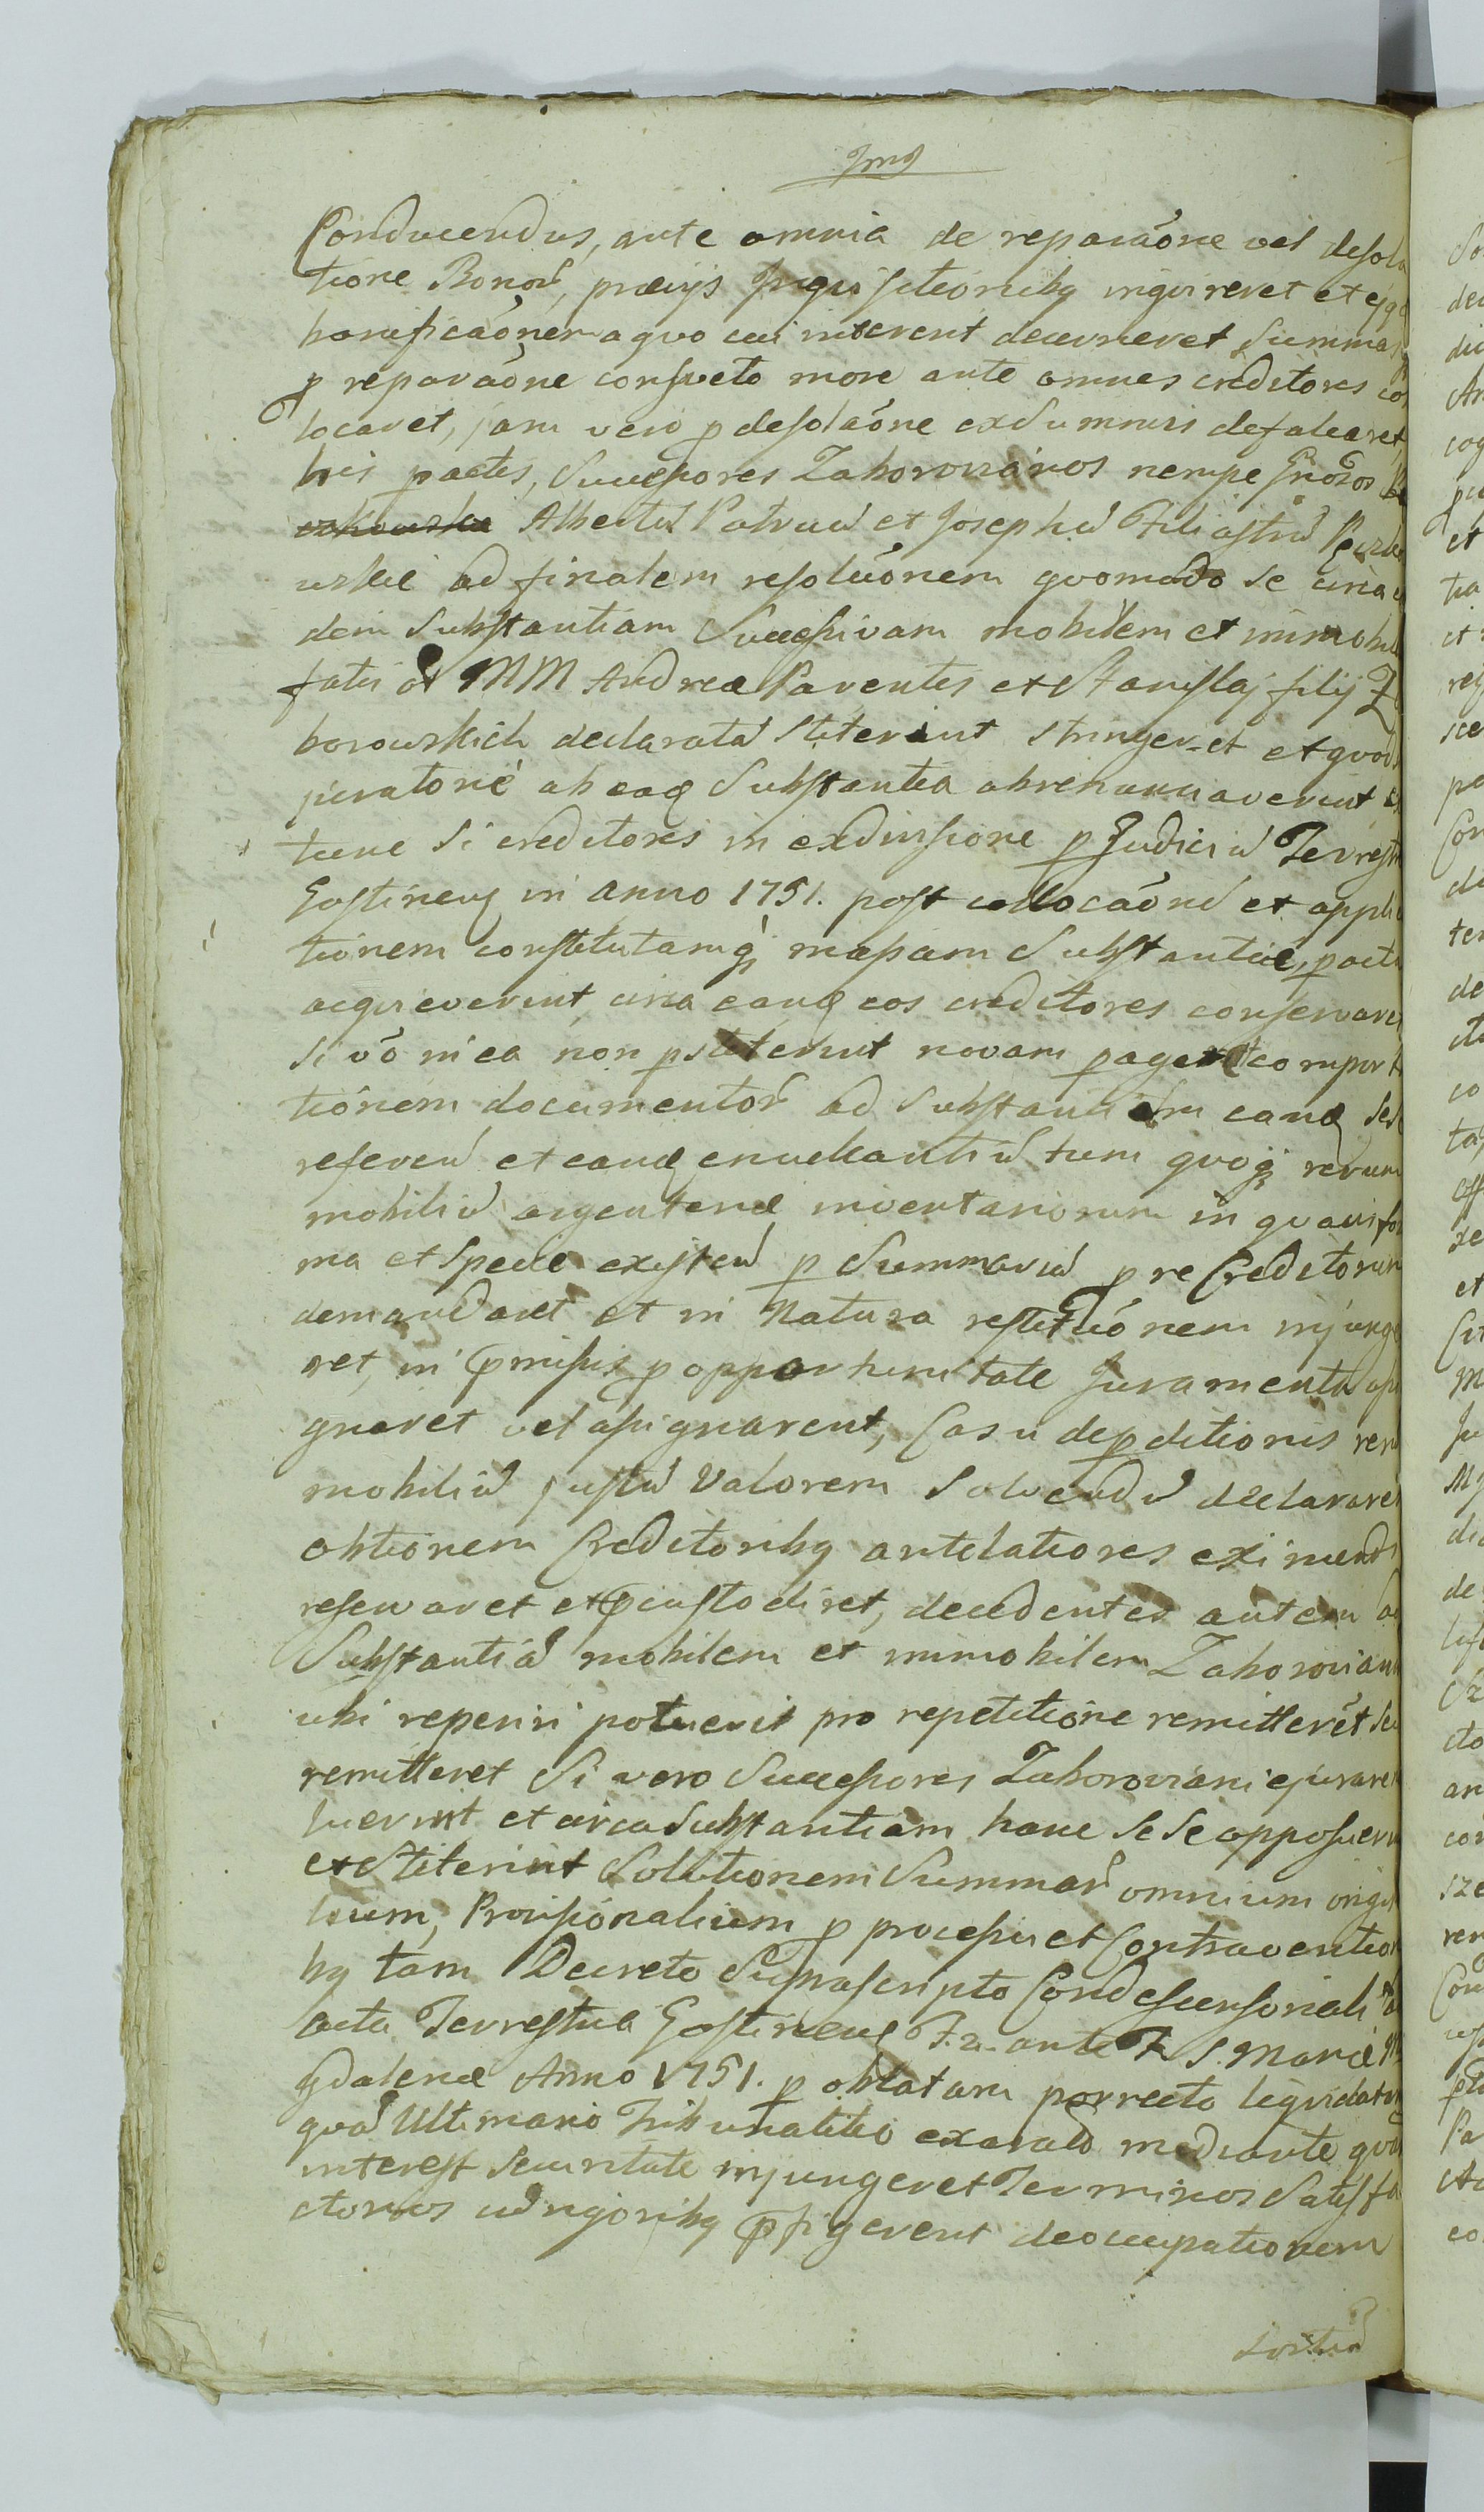 Conducendus, ante omnia de reparaõne vel desola
tione Bonor̃, prævijs Inquisitionibq inquireret et ejq
bonificaõnem a quo cui interent decerneret Summas
p reparaõne consveto more ante omnes creditores col
locaret, jam vero p desolaõne ex Summis defalcaret
his pactis, Successores Zaborovianos nempe Gnosos
Albertũ Patruũ et Josephũ Filiastrũ
wskie ad finalem resolũonem quomodo se circa e
dem Substantiam Successivam mobilem et immobil
fatis et MM Andreæ Parentis et Stanislaj filij Z
borowskich declaratũ stiterint stringeret et quod
juratorie ab eaq Substantia abrenunciaverint
tunc Si creditores in exdivisione p Judiciũ Terrestre
Gostinenq in anno 1751. post collocaõnẽ et applica
tionem constitutamq massam Substantiæ, pacta
acquieverint, circa eanq eos creditores conservaret
Si vo in ea non pstiterint novam pageret comporta
tionem documentor̃ ad Substantiam eanq sese
referen̄ et eanq enucleantiũ tum quoq rerum
mobiliũ argenteriæ inventariorum in quavis for
ma et specie existen̄ p Summariũ p re Creditorum
demandaret et in Natura restitũonem injunge
ret, in pmissis p opportunitate Juramenta assi
gnaret vel assignarent, Casu depditionis rerũ
mobiliũ justũ Valorem Solvendũ declararet
obtionem Creditoribq antelatiores eximendi
reservaret et pcustodiret, decedentes autem ad
Substantiã mobilem et immobilem Zaboroviana
ubi reperiri potuerit pro repetitione remitteret seu
remitteret Si vero Successores Zaboroviani ejurare
luerint et circa Substantiam hanc sese opposuerint
et Stiterint Solutionem Summar̃ omnium origina
lium, Provisionalium p processu et Contraventioni
bq tam Decreto Suprascripto Condescensoriali ad
acta Terrestria Gostinenq F. 2. ante F. S. Mariæ Ma
gdalenæ Anno 1751. p oblatam porrecto liquidatar
quã Ultimario Tribunalitio exarato mediante quar
interest Securitate injungeret Terminos Satisfa
ctorios pfigerent deoccupationem
Sortiũ